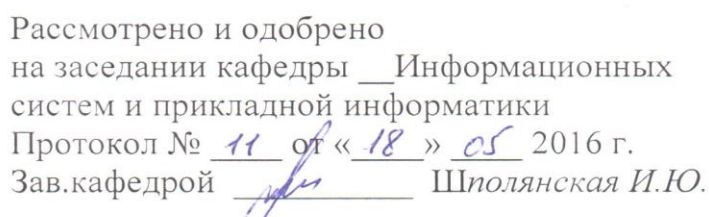 Рассмотрено и одобрено
на заседании кафедры __Информационных
систем и прикладной информатики
Протокол № 11 от « 18 » 05 2016 г.
Зав.кафедрой ____________ Шполянская И.Ю.